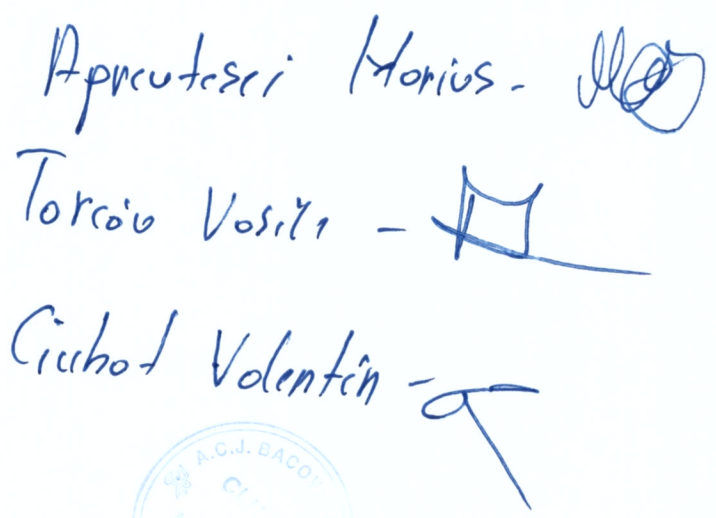 Apreutesei Marius -
Tarcău Vasile -
Ciubot Valentin -
A.C.J. BACĂU